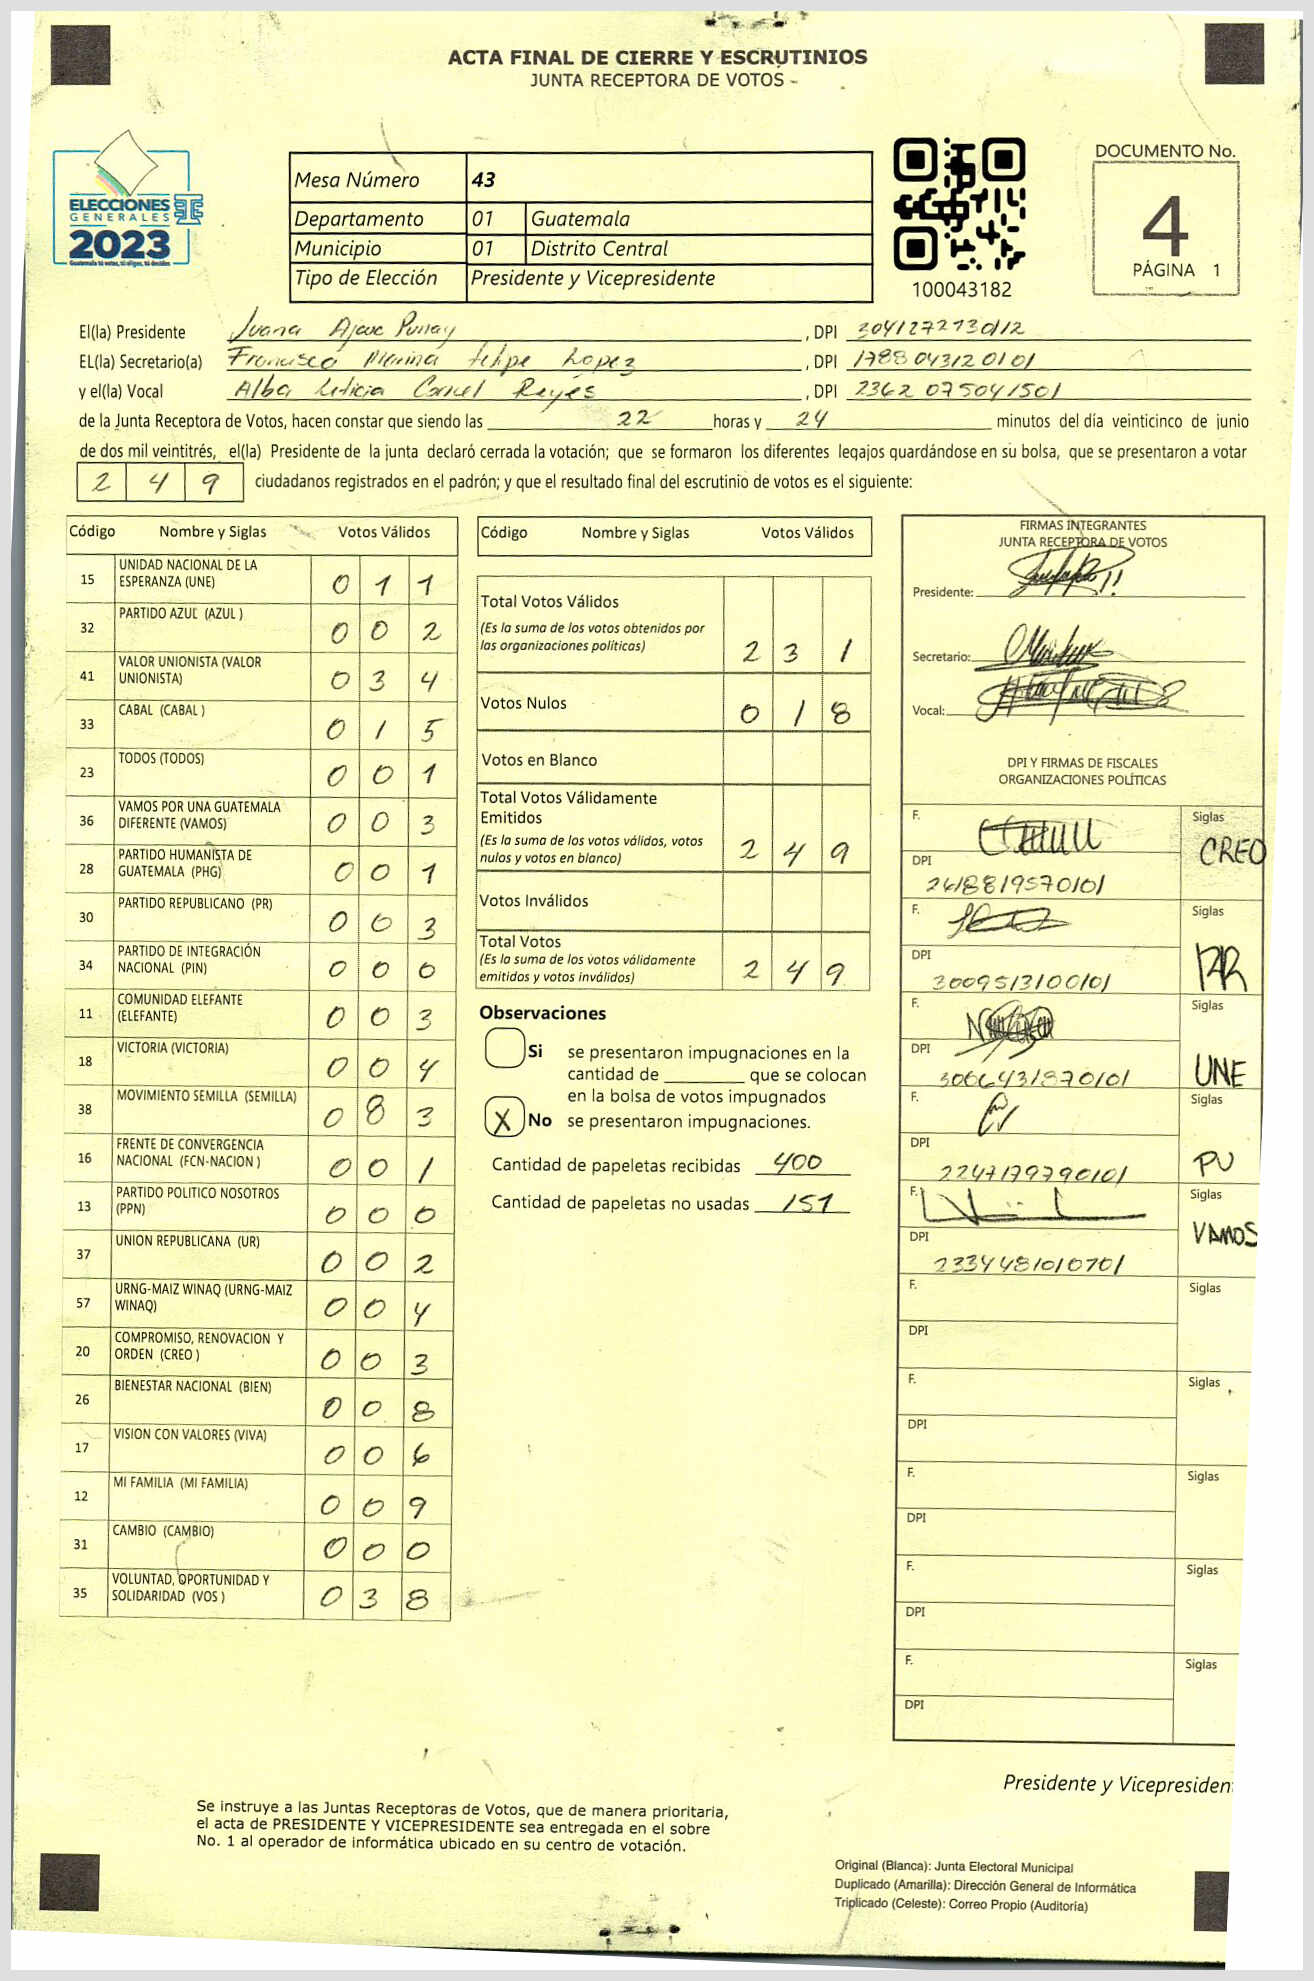 ACTA FINAL DE CIERRE Y ESCRUTINIOS
JUNTA RECEPTORA DE VOTOS
ELECCIONES
GENERALES
2023
Guatemala tú votas, tú eliges, tú decides
Mesa Número 43
Departamento 01 Guatemala
Municipio 01 Distrito Central
Tipo de Elección Presidente y Vicepresidente
100043182
DOCUMENTO No.
4
PÁGINA 1
El(la) Presidente Juana , DPI
EL(la) Secretario(a) Francisca Marina Felipe Lopez , DPI 1788043120101
y el(la) Vocal Alba Leticia Reyes , DPI 2362 075041501
de la Junta Receptora de Votos, hacen constar que siendo las 22 horas y 24 minutos del día veinticinco de junio
de dos mil veintitrés, el(la) Presidente de la junta declaró cerrada la votación; que se formaron los diferentes legajos guardándose en su bolsa, que se presentaron a votar
2 4 9 ciudadanos registrados en el padrón; y que el resultado final del escrutinio de votos es el siguiente:
Código Nombre y Siglas Votos Válidos
15 UNIDAD NACIONAL DE LA ESPERANZA (UNE) 0 1 1
32 PARTIDO AZUL (AZUL ) 0 0 2
41 VALOR UNIONISTA (VALOR UNIONISTA) 0 3 4
33 CABAL (CABAL ) 0 1 5
23 TODOS (TODOS) 0 0 1
36 VAMOS POR UNA GUATEMALA DIFERENTE (VAMOS) 0 0 3
28 PARTIDO HUMANISTA DE GUATEMALA (PHG) 0 0 1
30 PARTIDO REPUBLICANO (PR) 0 0 3
34 PARTIDO DE INTEGRACIÓN NACIONAL (PIN) 0 0 0
11 COMUNIDAD ELEFANTE (ELEFANTE) 0 0 3
18 VICTORIA (VICTORIA) 0 0 4
38 MOVIMIENTO SEMILLA (SEMILLA) 0 8 3
16 FRENTE DE CONVERGENCIA NACIONAL (FCN-NACION ) 0 0 1
13 PARTIDO POLITICO NOSOTROS (PPN) 0 0 0
37 UNION REPUBLICANA (UR) 0 0 2
57 URNG-MAIZ WINAQ (URNG-MAIZ WINAQ) 0 0 4
20 COMPROMISO, RENOVACION Y ORDEN (CREO ) 0 0 3
26 BIENESTAR NACIONAL (BIEN) 0 0 8
17 VISION CON VALORES (VIVA) 0 0 6
12 MI FAMILIA (MI FAMILIA) 0 0 9
31 CAMBIO (CAMBIO) 0 0 0
35 VOLUNTAD, OPORTUNIDAD Y SOLIDARIDAD (VOS ) 0 3 8
Código Nombre y Siglas Votos Válidos
Total Votos Válidos
(Es la suma de los votos obtenidos por
las organizaciones politicas) 2 3 1
Votos Nulos 0 1 8
Votos en Blanco
Total Votos Válidamente
Emitidos
(Es la suma de los votos válidos, votos
nulos y votos en blanco) 2 4 9
Votos Inválidos
Total Votos
(Es la suma de los votos válidamente
emitidos y votos inválidos) 2 4 9
Observaciones
Si se presentaron impugnaciones en la
cantidad de ________ que se colocan
en la bolsa de votos impugnados
X No se presentaron impugnaciones.
Cantidad de papeletas recibidas 400
Cantidad de papeletas no usadas 151
FIRMAS INTEGRANTES
JUNTA RECEPTORA DE VOTOS
Presidente:
Secretario:
Vocal:
DPI Y FIRMAS DE FISCALES
ORGANIZACIONES POLÍTICAS
F. Siglas CREO
DPI 2418819570101
F. Siglas PR
DPI 3009513100101
F. Siglas UNE
DPI 3066431870101
F. Siglas PU
DPI 2247179790101
F. Siglas VAMOS
DPI 2334481010701
F. Siglas
DPI
F. Siglas
DPI
F. Siglas
DPI
F. Siglas
DPI
F. Siglas
DPI
Presidente y Vicepresiden
Se instruye a las Juntas Receptoras de Votos, que de manera prioritaria,
el acta de PRESIDENTE Y VICEPRESIDENTE sea entregada en el sobre
No. 1 al operador de informática ubicado en su centro de votación.
Original (Blanca): Junta Electoral Municipal
Duplicado (Amarilla): Dirección General de Informática
Triplicado (Celeste): Correo Propio (Auditoría)